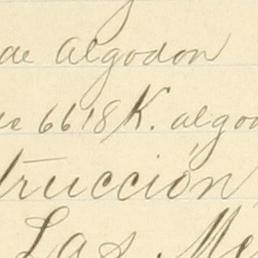 de algodon
6618 K. algo
trucción
Las Me